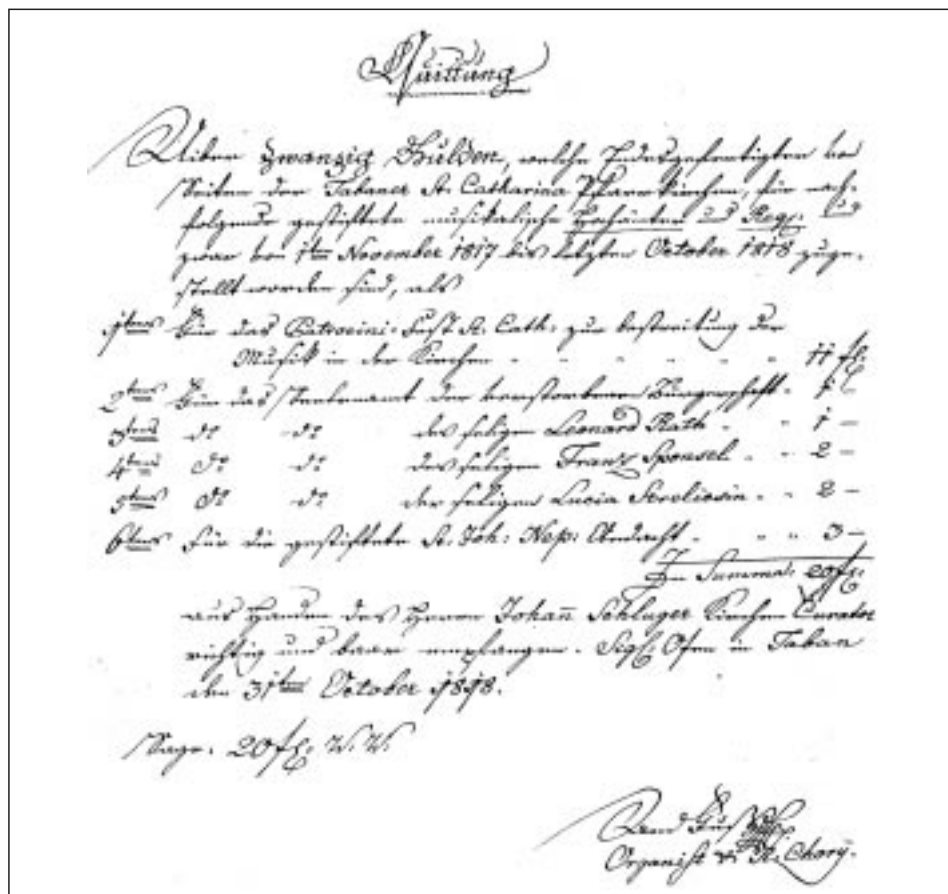 Quittung
Uiber zwanzig Gulden, welche Endesgefertigten von
Seiten der Tabaner St. Catharina Pfarrkirchen, für nach-
folgende gestiftete musikalische Hochämter und Req: und
zwar von 1ten November 1817 bis letzten October 1818 zuge-
stellt worden sind, als
1tens Für das Patrocini-Fest St. Cath: zur bestreitung der
Musik in der Kirchen - - - - - - 11 fl:
2tens Für das Seelenamt der verstorbenen Bürgerschaft - 1 -
3tens do do des seligen Leonard Rath - - 1 -
4tens do do des seligen Franz Sponsel - - 2 -
5tens do do der seligen Lucia - - 2 -
6tens Für die gestiftete St. Joh: Nep: Andacht - - - 3 -
In Summa: 20 fl:
aus Handen des Herrn Johann Schluger Kirchen Curator
richtig und baar empfangen. Sigl: Ofen in Taban
den 31ten October 1818.
Sage: 20 fl: W. W.
Organist R. Chory.